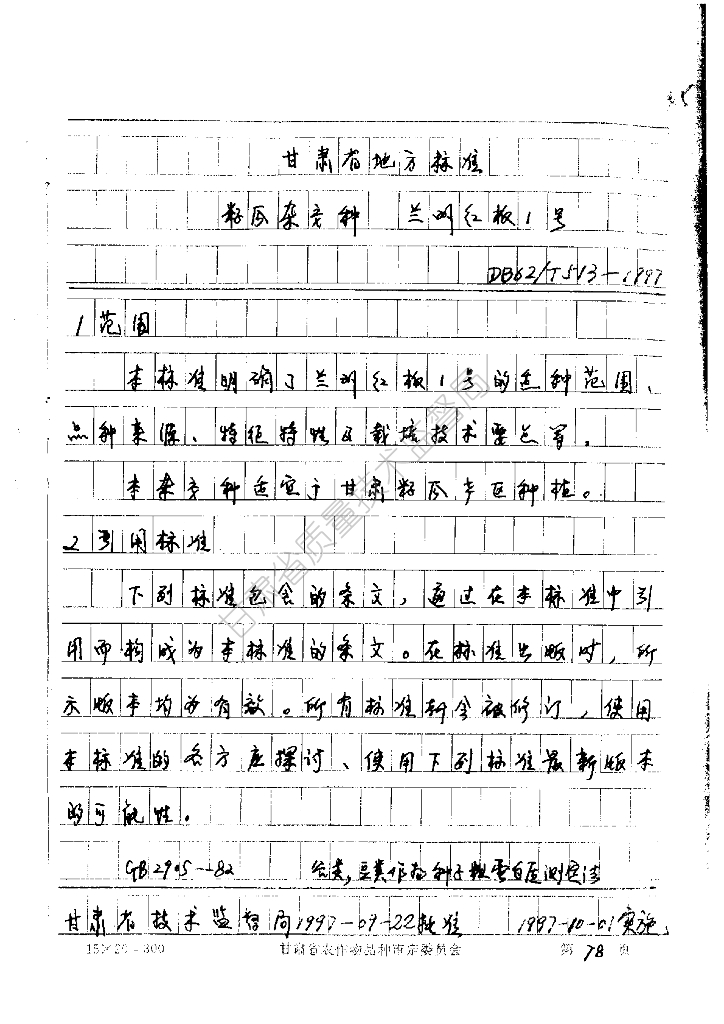 甘肃省地方标准
籽瓜杂交种 兰州红板1号
DB62/T513-1997
1 范围
本标准明确了兰州红板1号的适种范围、
品种来源、特征特性及栽培技术要点等。
本杂交种适宜于甘肃籽瓜产区种植。
2 引用标准
下列标准包含的条文，通过在本标准中引
用而构成为本标准的条文。在标准出版时，所
示版本均为有效。所有标准都会被修订，使用
本标准的各方应探讨、使用下列标准最新版本
的可能性。
GB2905-82 谷类,豆类作物种子粗蛋白质测定法
甘肃省技术监督局1997-09-22批准 1997-10-01实施
15×20=300 甘肃省农作物品种审定委员会 第78页
甘肃省质量技术监督局